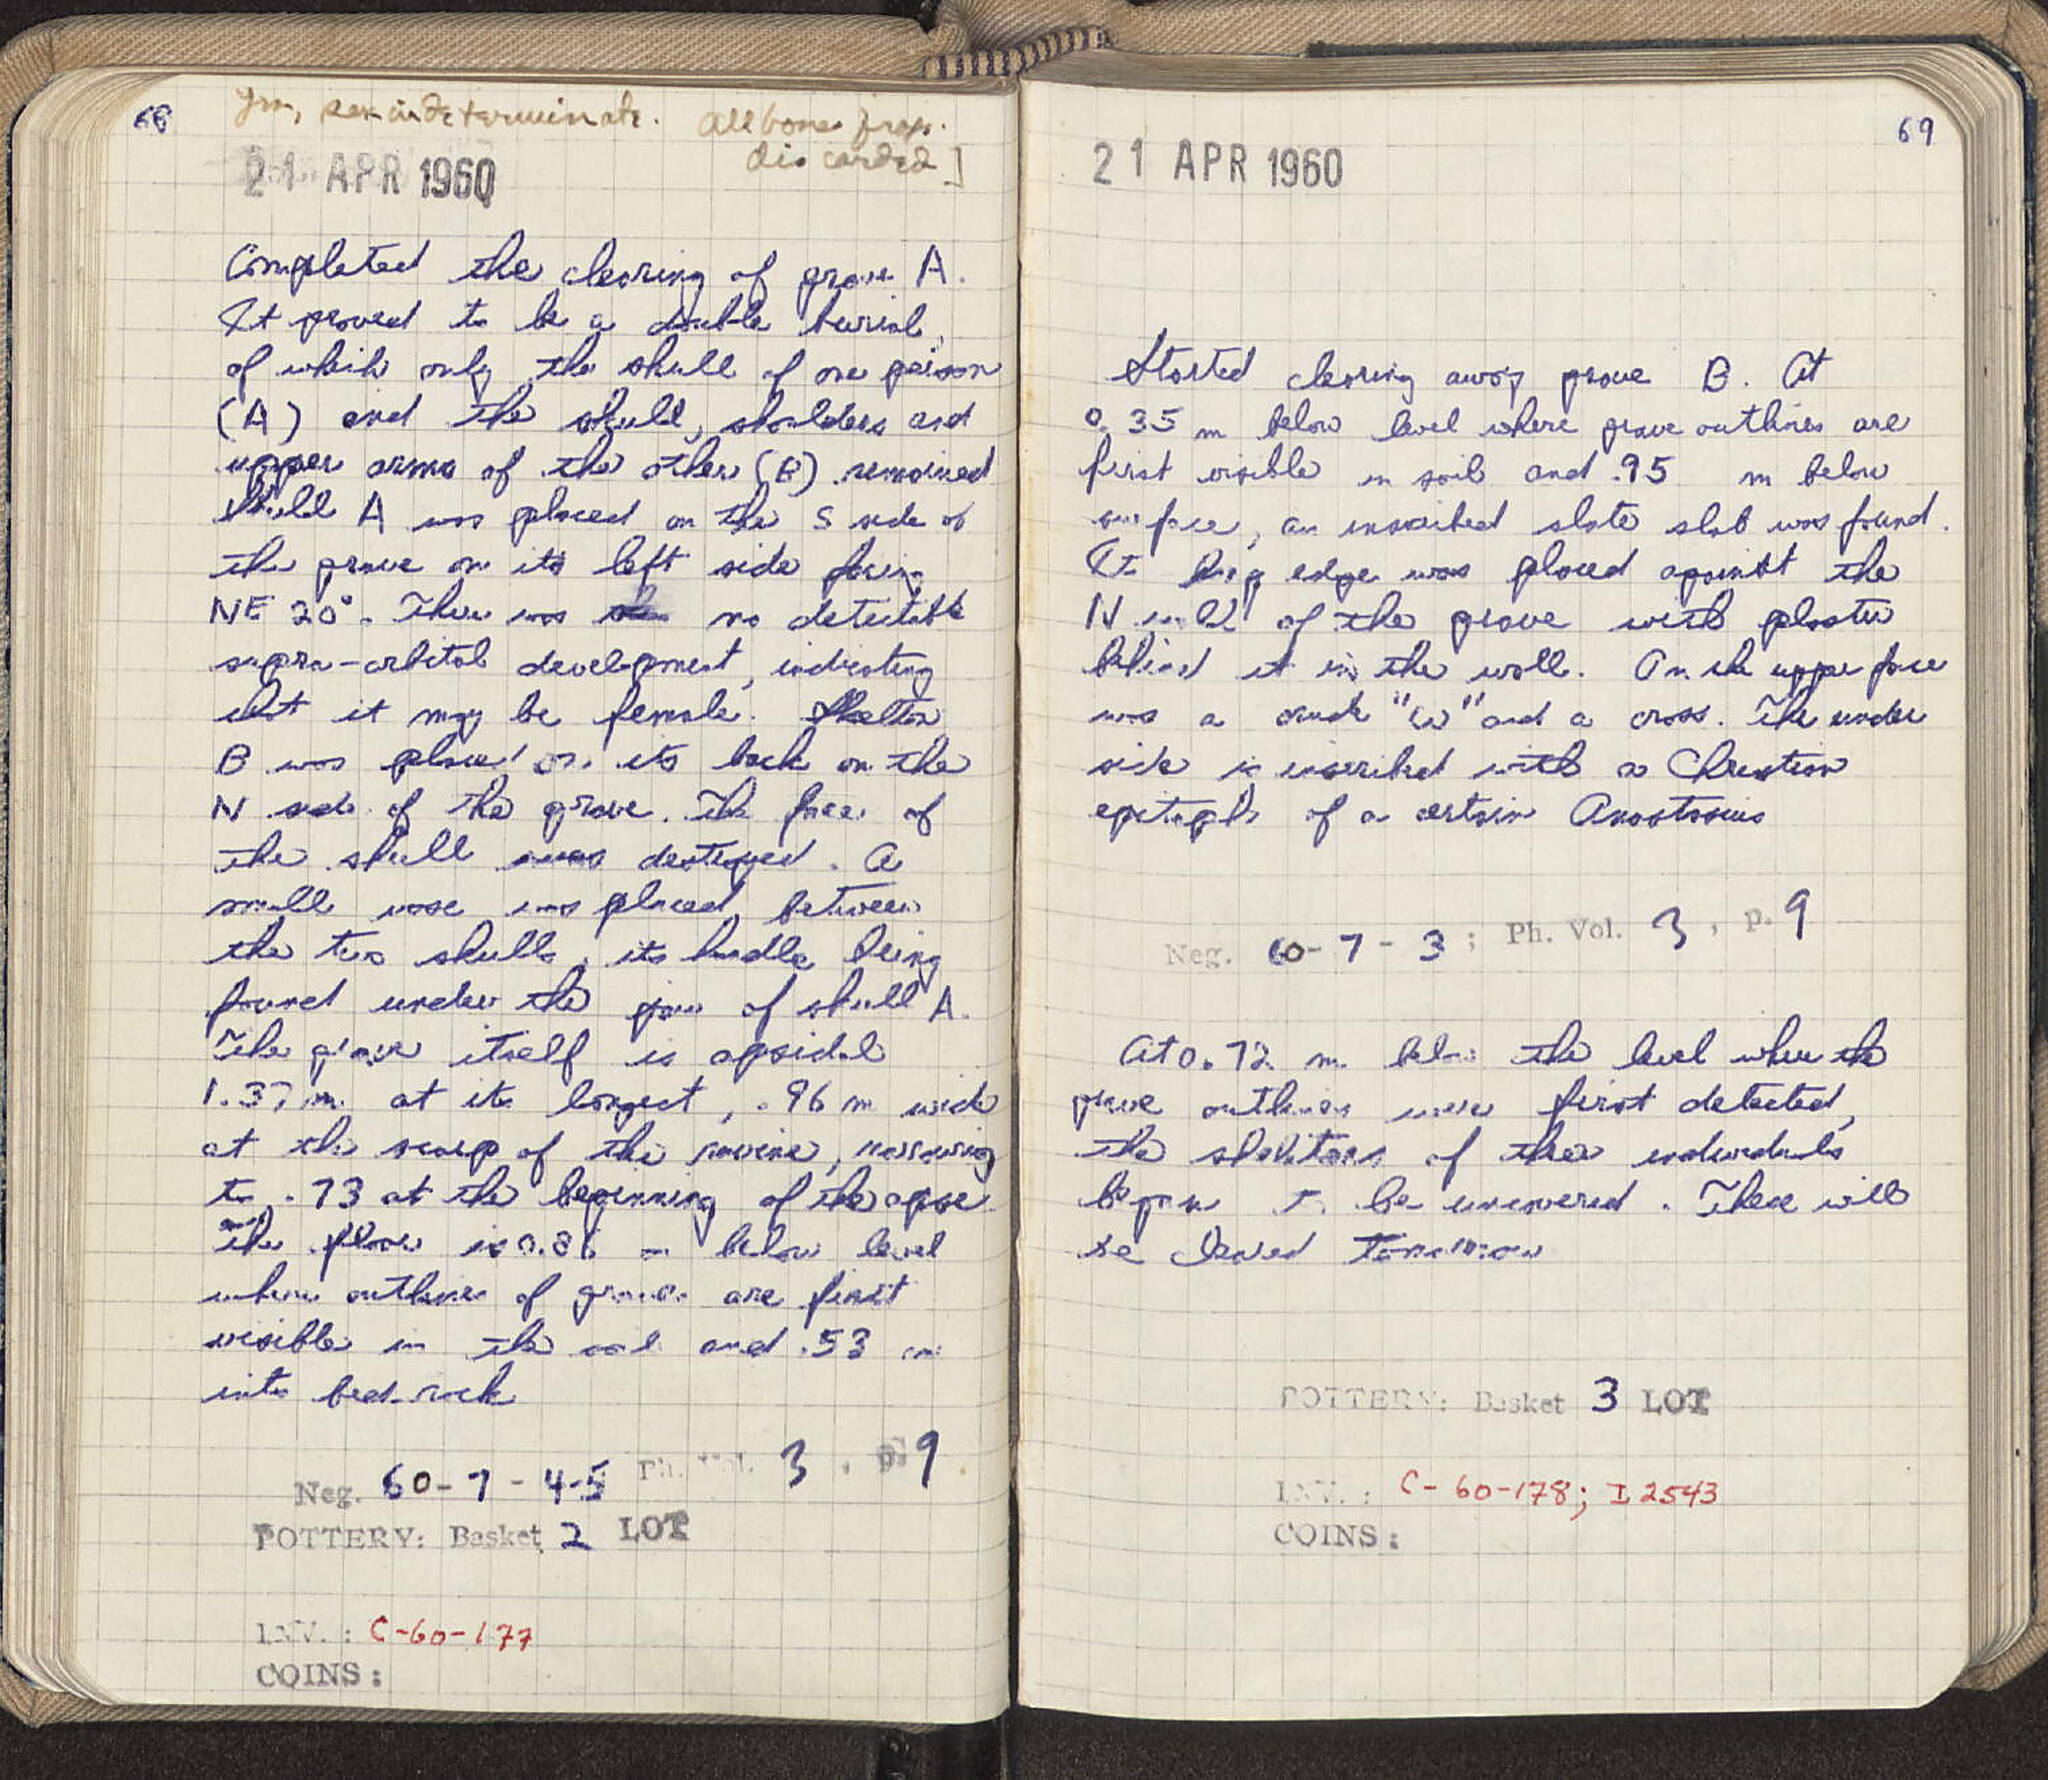 68
yrs, sex indeterminate. All bones frag.
discarded]
21 APR 1960
Completed the clearing of grave A.
It proved to be a double burial,
of which only the skull of one person
(A) and the skull, shoulders and
upper arms of the other (B) remained
Skull A was placed on the S side of
the grave on its left side facing
NE 20°. There was no detectable
supra-orbital development, indicating
that it may be female. Skeleton
B was placed on its back on the
N side of the grave. The face of
the skull was destroyed. A
small vase was placed between
the two skulls, its handle being
found under the jaw of skull A.
The grave itself is apsidal
1.37 m. at its longest, .96 m wide
at the scarp of the ravine, narrowing
to .73 at the beginning of the apse.
The floor is 0.86 m below level
where outlines of graves are first
visible in the soil and .53 m
into bed-rock
Neg. 60-7-4-5 Ph. Vol. 3, p. 9
POTTERY: Basket 2 LOT
INV.: C-60-177
COINS:
69
21 APR 1960
Started clearing away grave B. At
0.35 m below level where grave outlines are
first visible in soil and .95 m below
surface, an inscribed slate slab was found.
Its long edge was placed against the
N wall of the grave with plaster
behind it in the wall. On the upper face
was a crude "ω" and a cross. The under
side is inscribed with a Christian
epitaph of a certain Anastasius
Neg. 60-7-3; Ph. Vol. 3, p. 9
At 0.72 m. below the level where the
grave outlines were first detected,
the skeletons of three individuals
began to be uncovered. These will
be cleared tomorrow
POTTERY: Basket 3 LOT
INV.: C-60-178; I 2543
COINS: